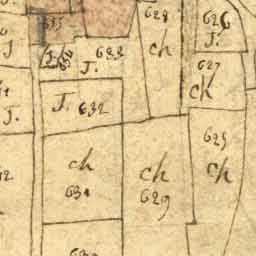 635
628
626
J.
J.
634
633
J.
ch
627
ch
J.
J. 632
625
ch
ch
631
ch
629